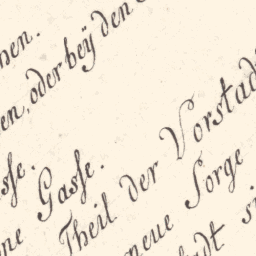 nen.
en, oder beÿ den
sse.
ne Gasse.
Theil der Vorstad
neue Sorge
dt si